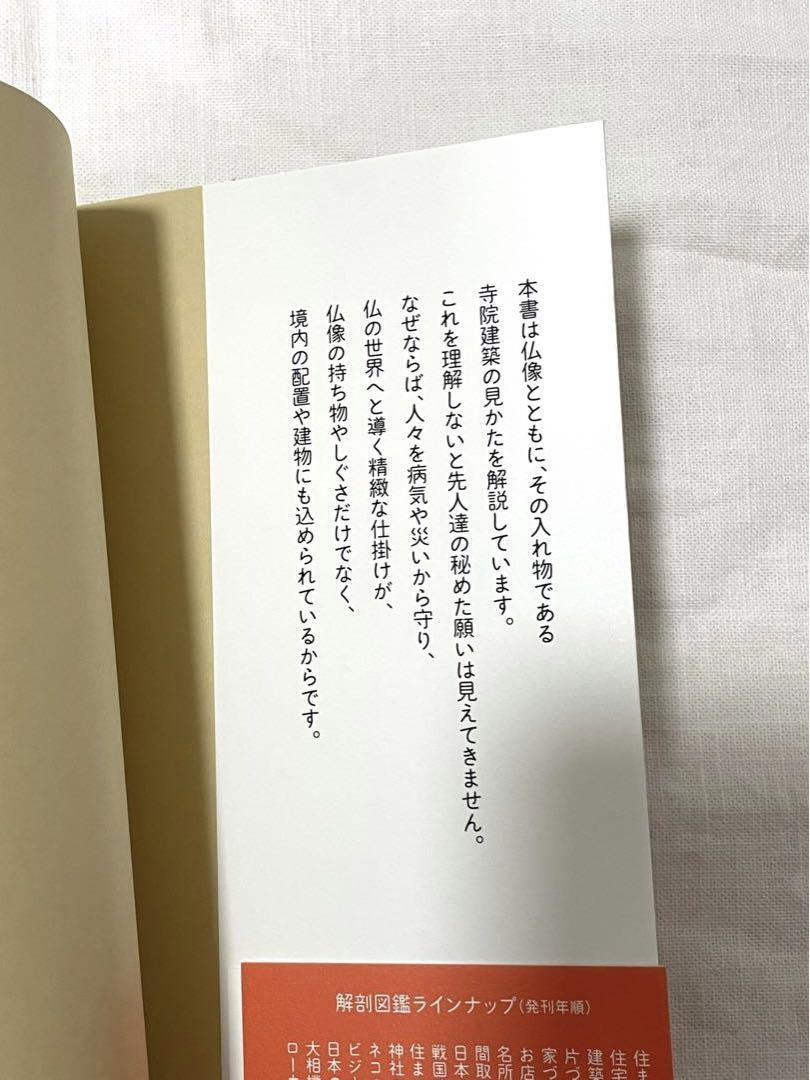 本書は仏像とともに、その入れ物である
寺院建築の見かたを解説しています。
これを理解しないと先人達の秘めた願いは見えてきません。
なぜならば、人々を病気や災いから守り、
仏の世界へと導く精緻な仕掛けが、
仏像の持ち物やしぐさだけでなく、
境内の配置や建物にも込められているからです。
解剖図鑑ラインナップ(発刊年順)
住ま
住宅
建築
片づ
家づ
お店
名所
間取
日本
戦国
住ま
神社
ネコ
ビジ
日本の
大相撲
ローカ